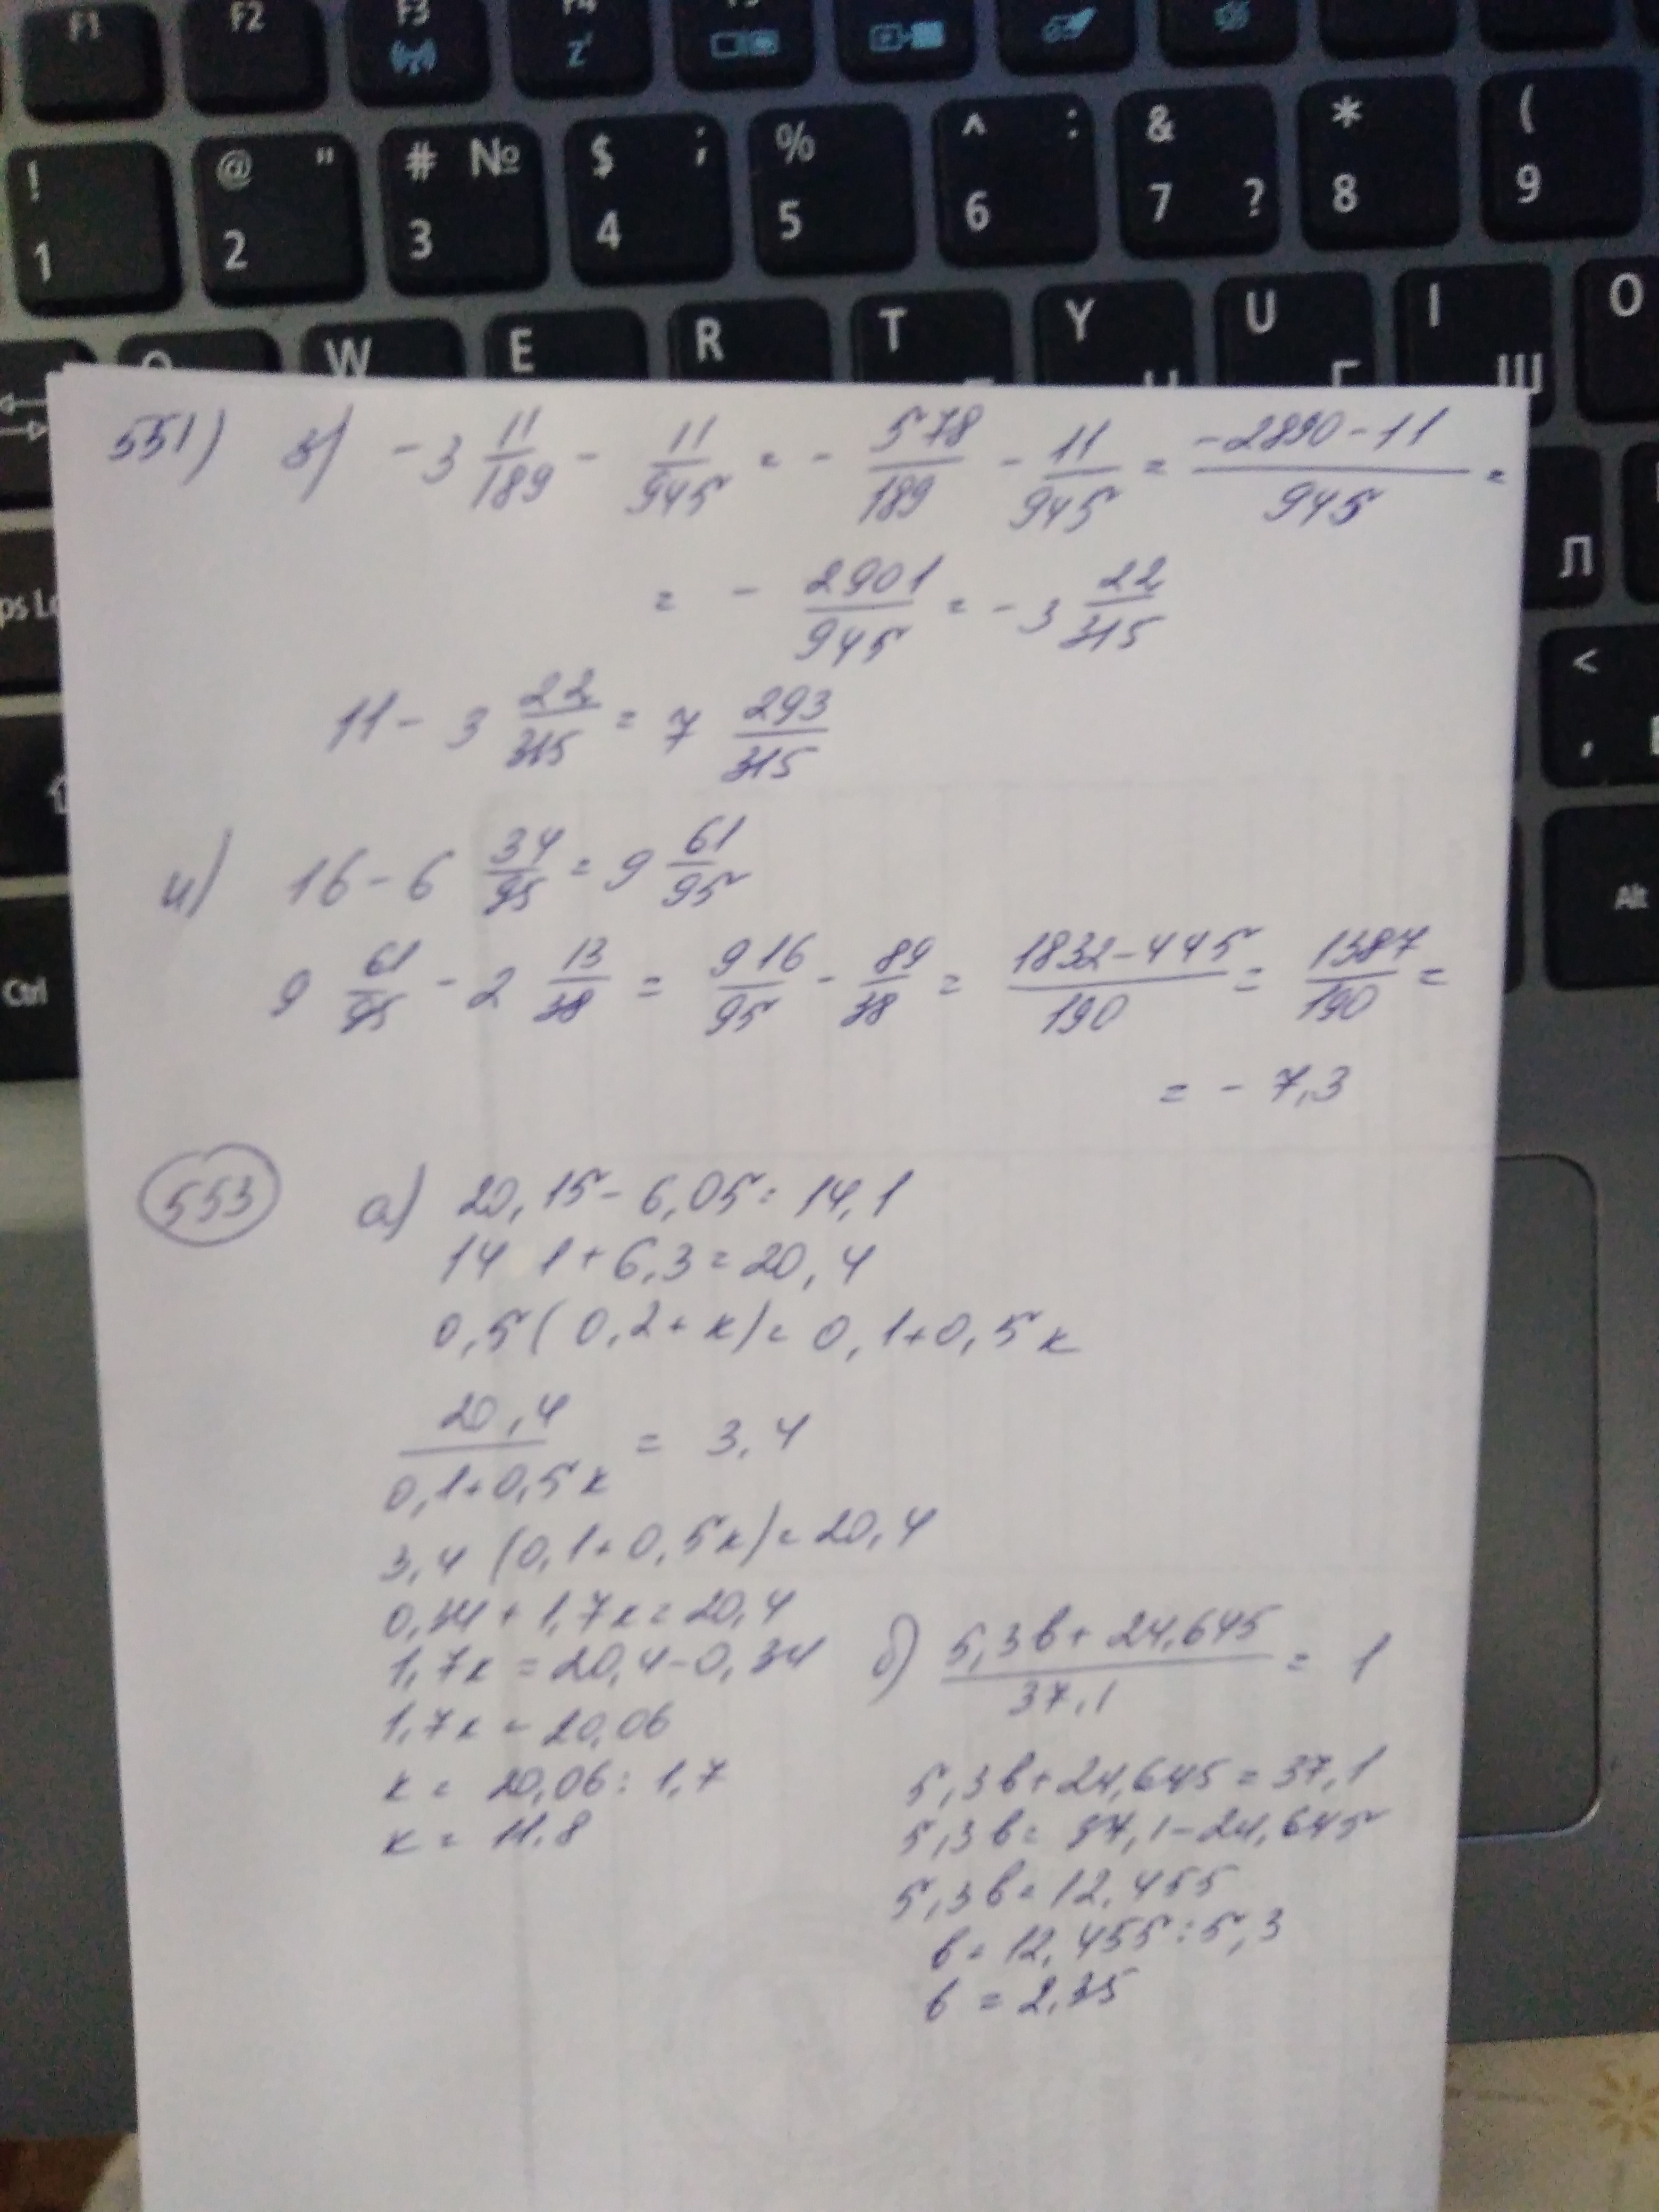 F1 F2 F3 F4
! 1 @ " 2 # № 3 $ ; 4 % 5 ^ : 6 & 7 ? * 8 ( 9
W E R T Y U I Ш O
Л
<
,
Alt
Ctrl
551) з) -3 11/189 - 11/945 = - 578/189 - 11/945 = (-2890-11)/945 =
= - 2901/945 = -3 22/315
11 - 3 22/315 = 7 293/315
и) 16 - 6 34/95 = 9 61/95
9 61/95 - 2 13/38 = 916/95 - 89/38 = (1832-445)/190 = 1387/190 =
= - 7,3
553 а) 20,15 - 6,05 = 14,1
14 1 + 6,3 = 20,4
0,5 (0,2 + к) = 0,1 + 0,5к
20,4/(0,1+0,5к) = 3,4
3,4 (0,1 + 0,5к) = 20,4
0,34 + 1,7к = 20,4
1,7к = 20,4 - 0,34
1,7к = 20,06
к = 20,06 : 1,7
к = 11,8
б) (5,3в + 24,645)/37,1 = 1
5,3в + 24,645 = 37,1
5,3в = 37,1 - 24,645
5,3в = 12,455
в = 12,455 : 5,3
в = 2,35